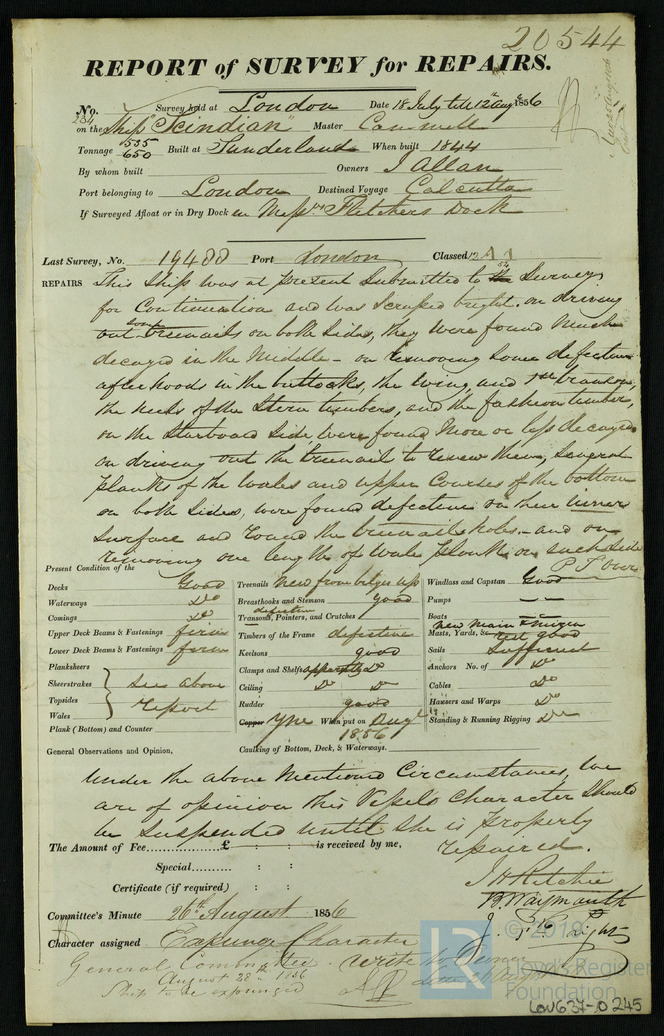 20544
REPORT of SURVEY for REPAIRS.
No. 284 Survey held at London Date 18 July till 12th Augt 1856
on the Ship "Scindian" Master Cammell
Tonnage 535 650 Built at Sunderland When built 1844
By whom built Owners J Allan
Port belonging to London Destined Voyage Calcutta
If Surveyed Afloat or in Dry Dock in Messrs Fletchers Dock
Last Survey, No. 19400 Port London Classed 12 A 1
REPAIRS This Ship was at present Submitted to Survey
for Continuation and was Scraped bright. on driving
out some treenails on both Sides, they were found Much
decayed in the Middle - on removing some defective
afterhoods in the buttocks, the wing, and 1st transom,
the heels of the Stern timbers, and the fashion timber,
on the Starboard Side, were found More or less decayed
on driving out the treenails to renew them, Several
planks of the Wales and upper Courses of the bottom
on both Sides, were found defective on their inner
Surface and round the treenail holes - and on
removing one length of Wale plank on each Side
P T over
Present Condition of the
Decks Good
Waterways Do
Comings Do
Upper Deck Beams & Fastenings firm
Lower Deck Beams & Fastenings firm
Planksheers
Sheerstrakes
Topsides
Wales
see above Report
Plank (Bottom) and Counter
Treenails New from bilges up
Breasthooks and Stemson good
Transoms, Pointers, and Crutches defective
Timbers of the Frame defective
Keelsons good
Clamps and Shelfs apparently Do
Ceiling Do Do
Rudder good
Copper YM When put on Augt 1856
Caulking of Bottom, Deck, & Waterways.
Windlass and Capstan Good
Pumps — —
Boats — —
Masts, Yards, &c. New Main & Mizen rest good
Sails Sufficient
Anchors No. of Do
Cables Do
Hawsers and Warps Do
Standing & Running Rigging Do
General Observations and Opinion,
Under the above Mentioned Circumstances, We
are of opinion this Vessels Character Should
be Suspended until She is properly
repaired.
The Amount of Fee £ : : is received by me,
Special : :
Certificate (if required) : :
J H Ritchie
B. Waymouth
J. P.
Committee's Minute 26th August 1856
Character assigned Expunge Character
General Committee
August 28th 1856
Ship to be expunged
write to
© 2019
Lloyd's Register
Foundation
LOV637-0245